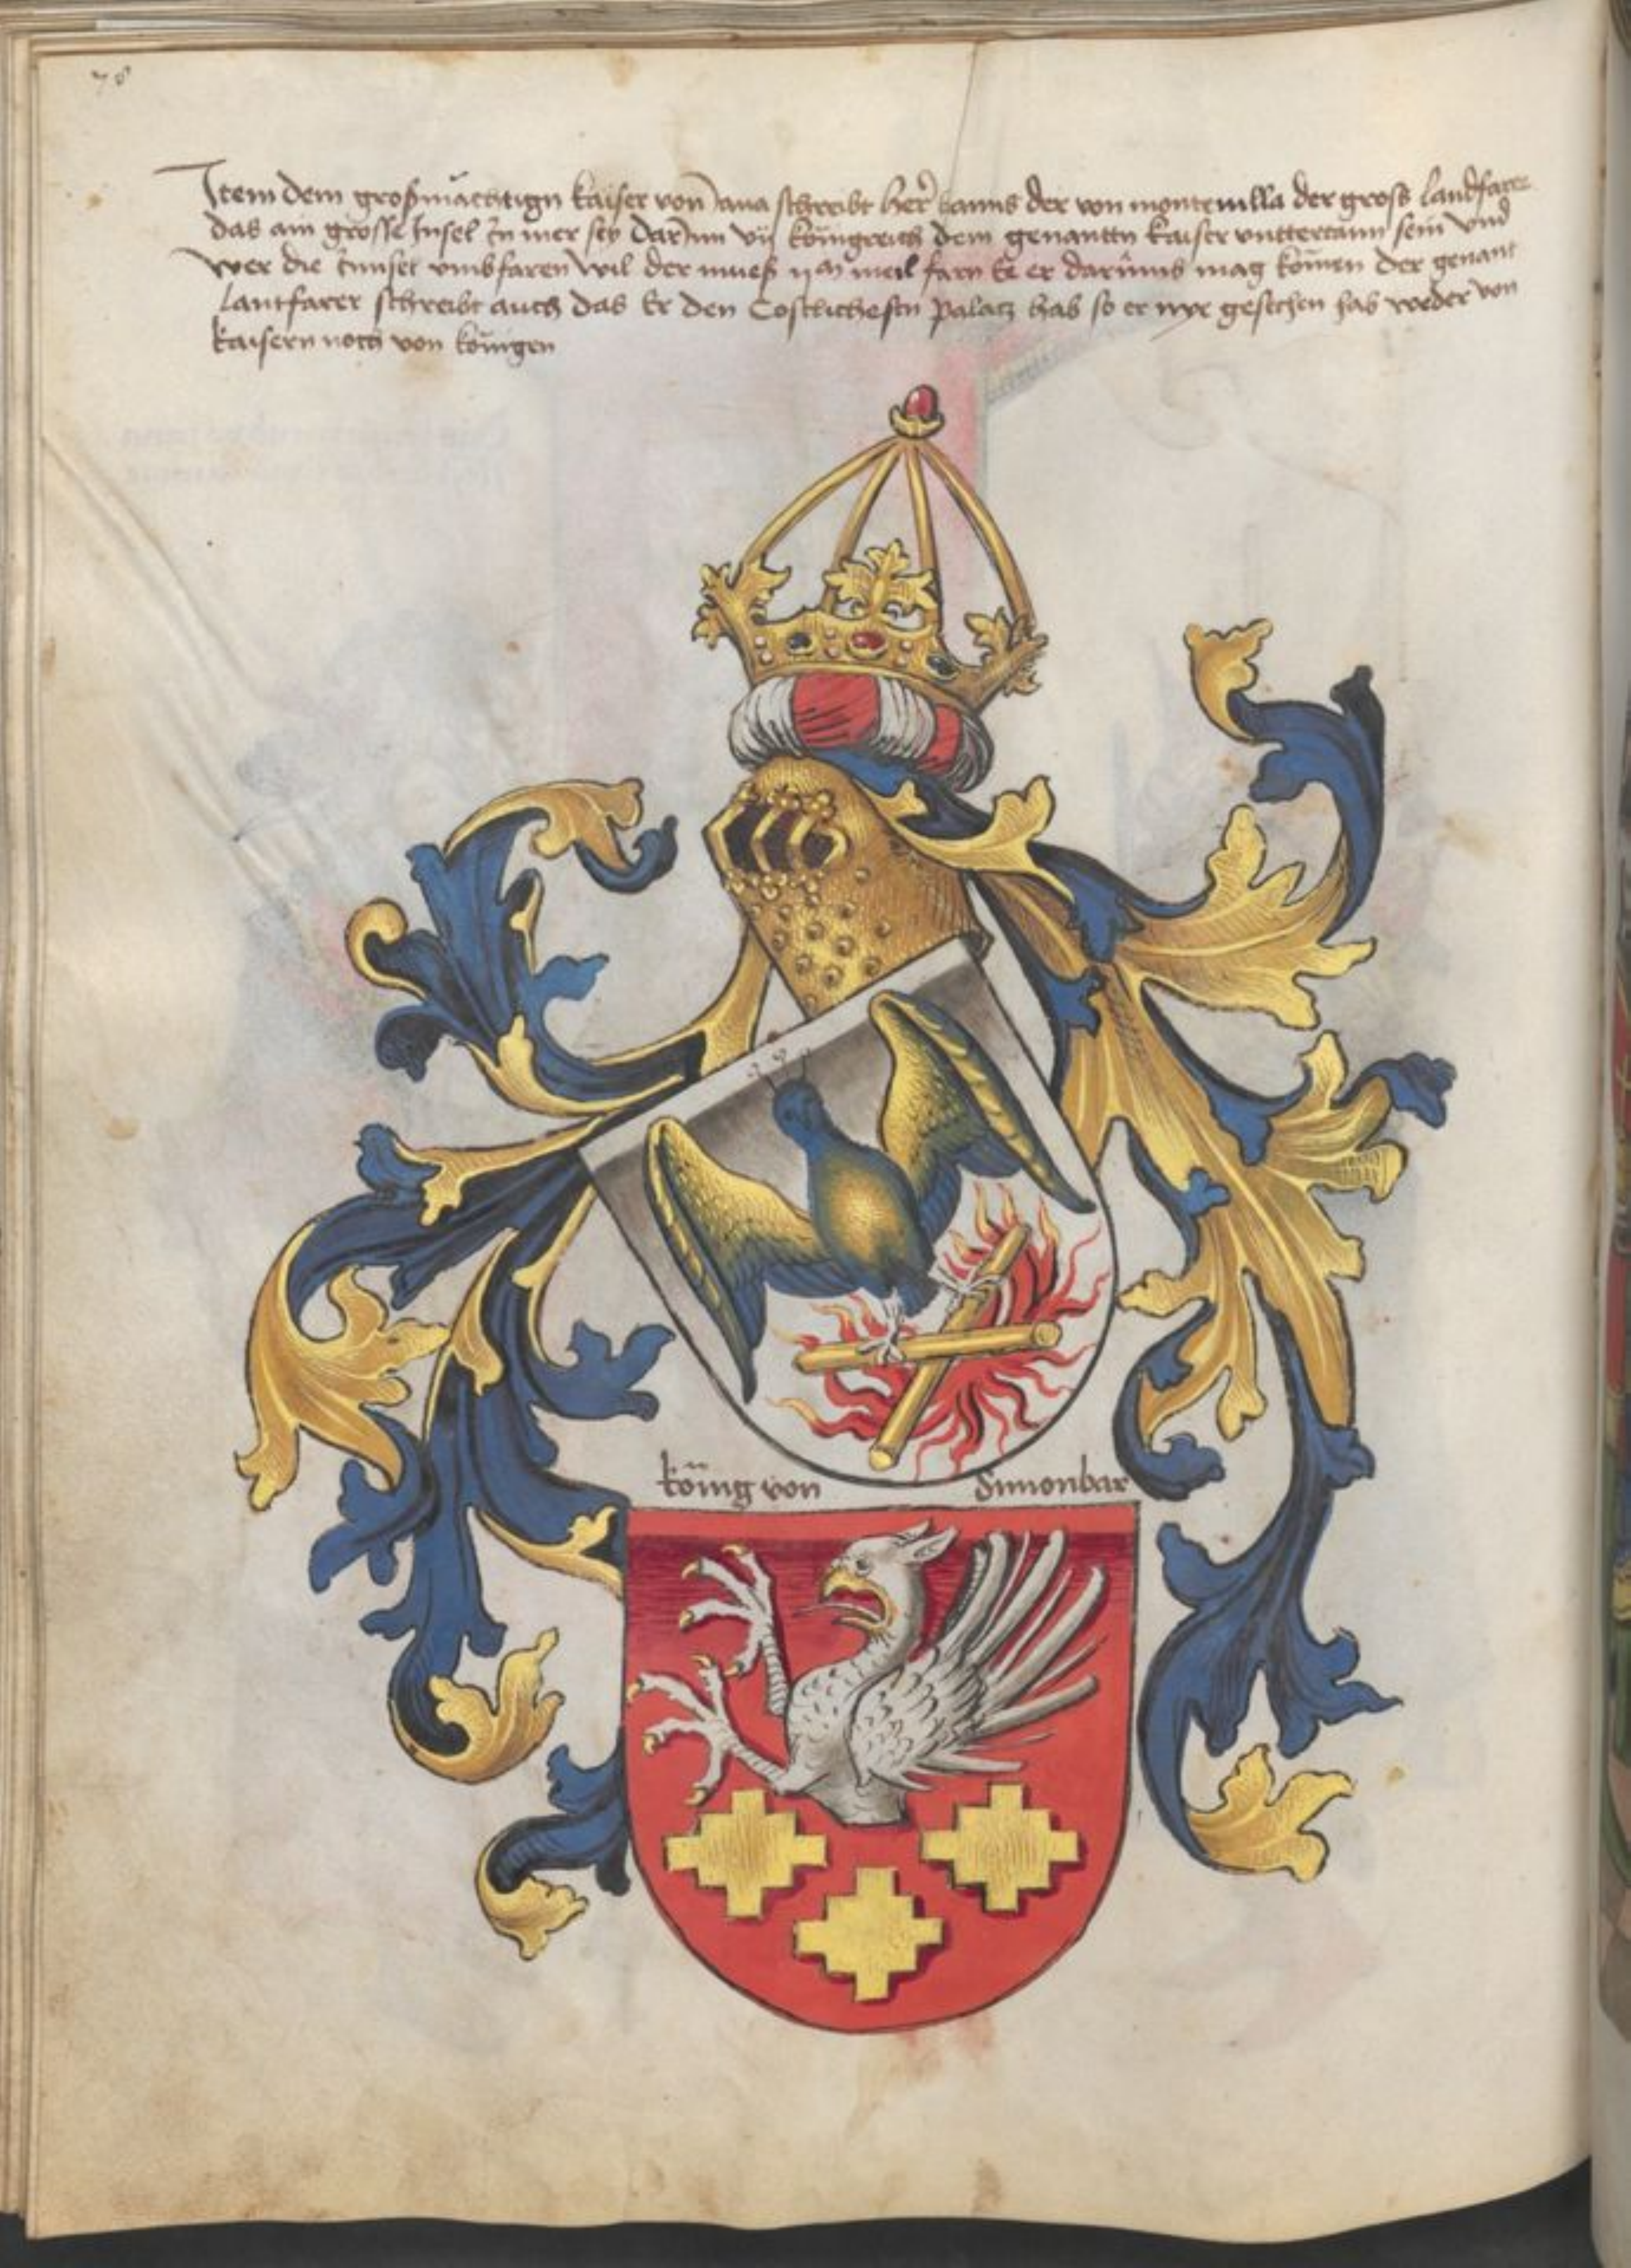 78
Item dem großmächtign kaiser von Jaua schreibt her hanns der von monteuilla der gross landfarer
das ain grosse Insel in mer sey Darinn vij königreich dem genantn kaiser vnttertann sein vnd
wer die Innsel vmbfaren wil der mueß ijm meil farn Ee er darumb mag komen der genant
lantfarer schreibt auch das Er den Costlichestn palatz hab so er nye gesechen hab weder von
kaisern noch von königen
köing von Simonbar